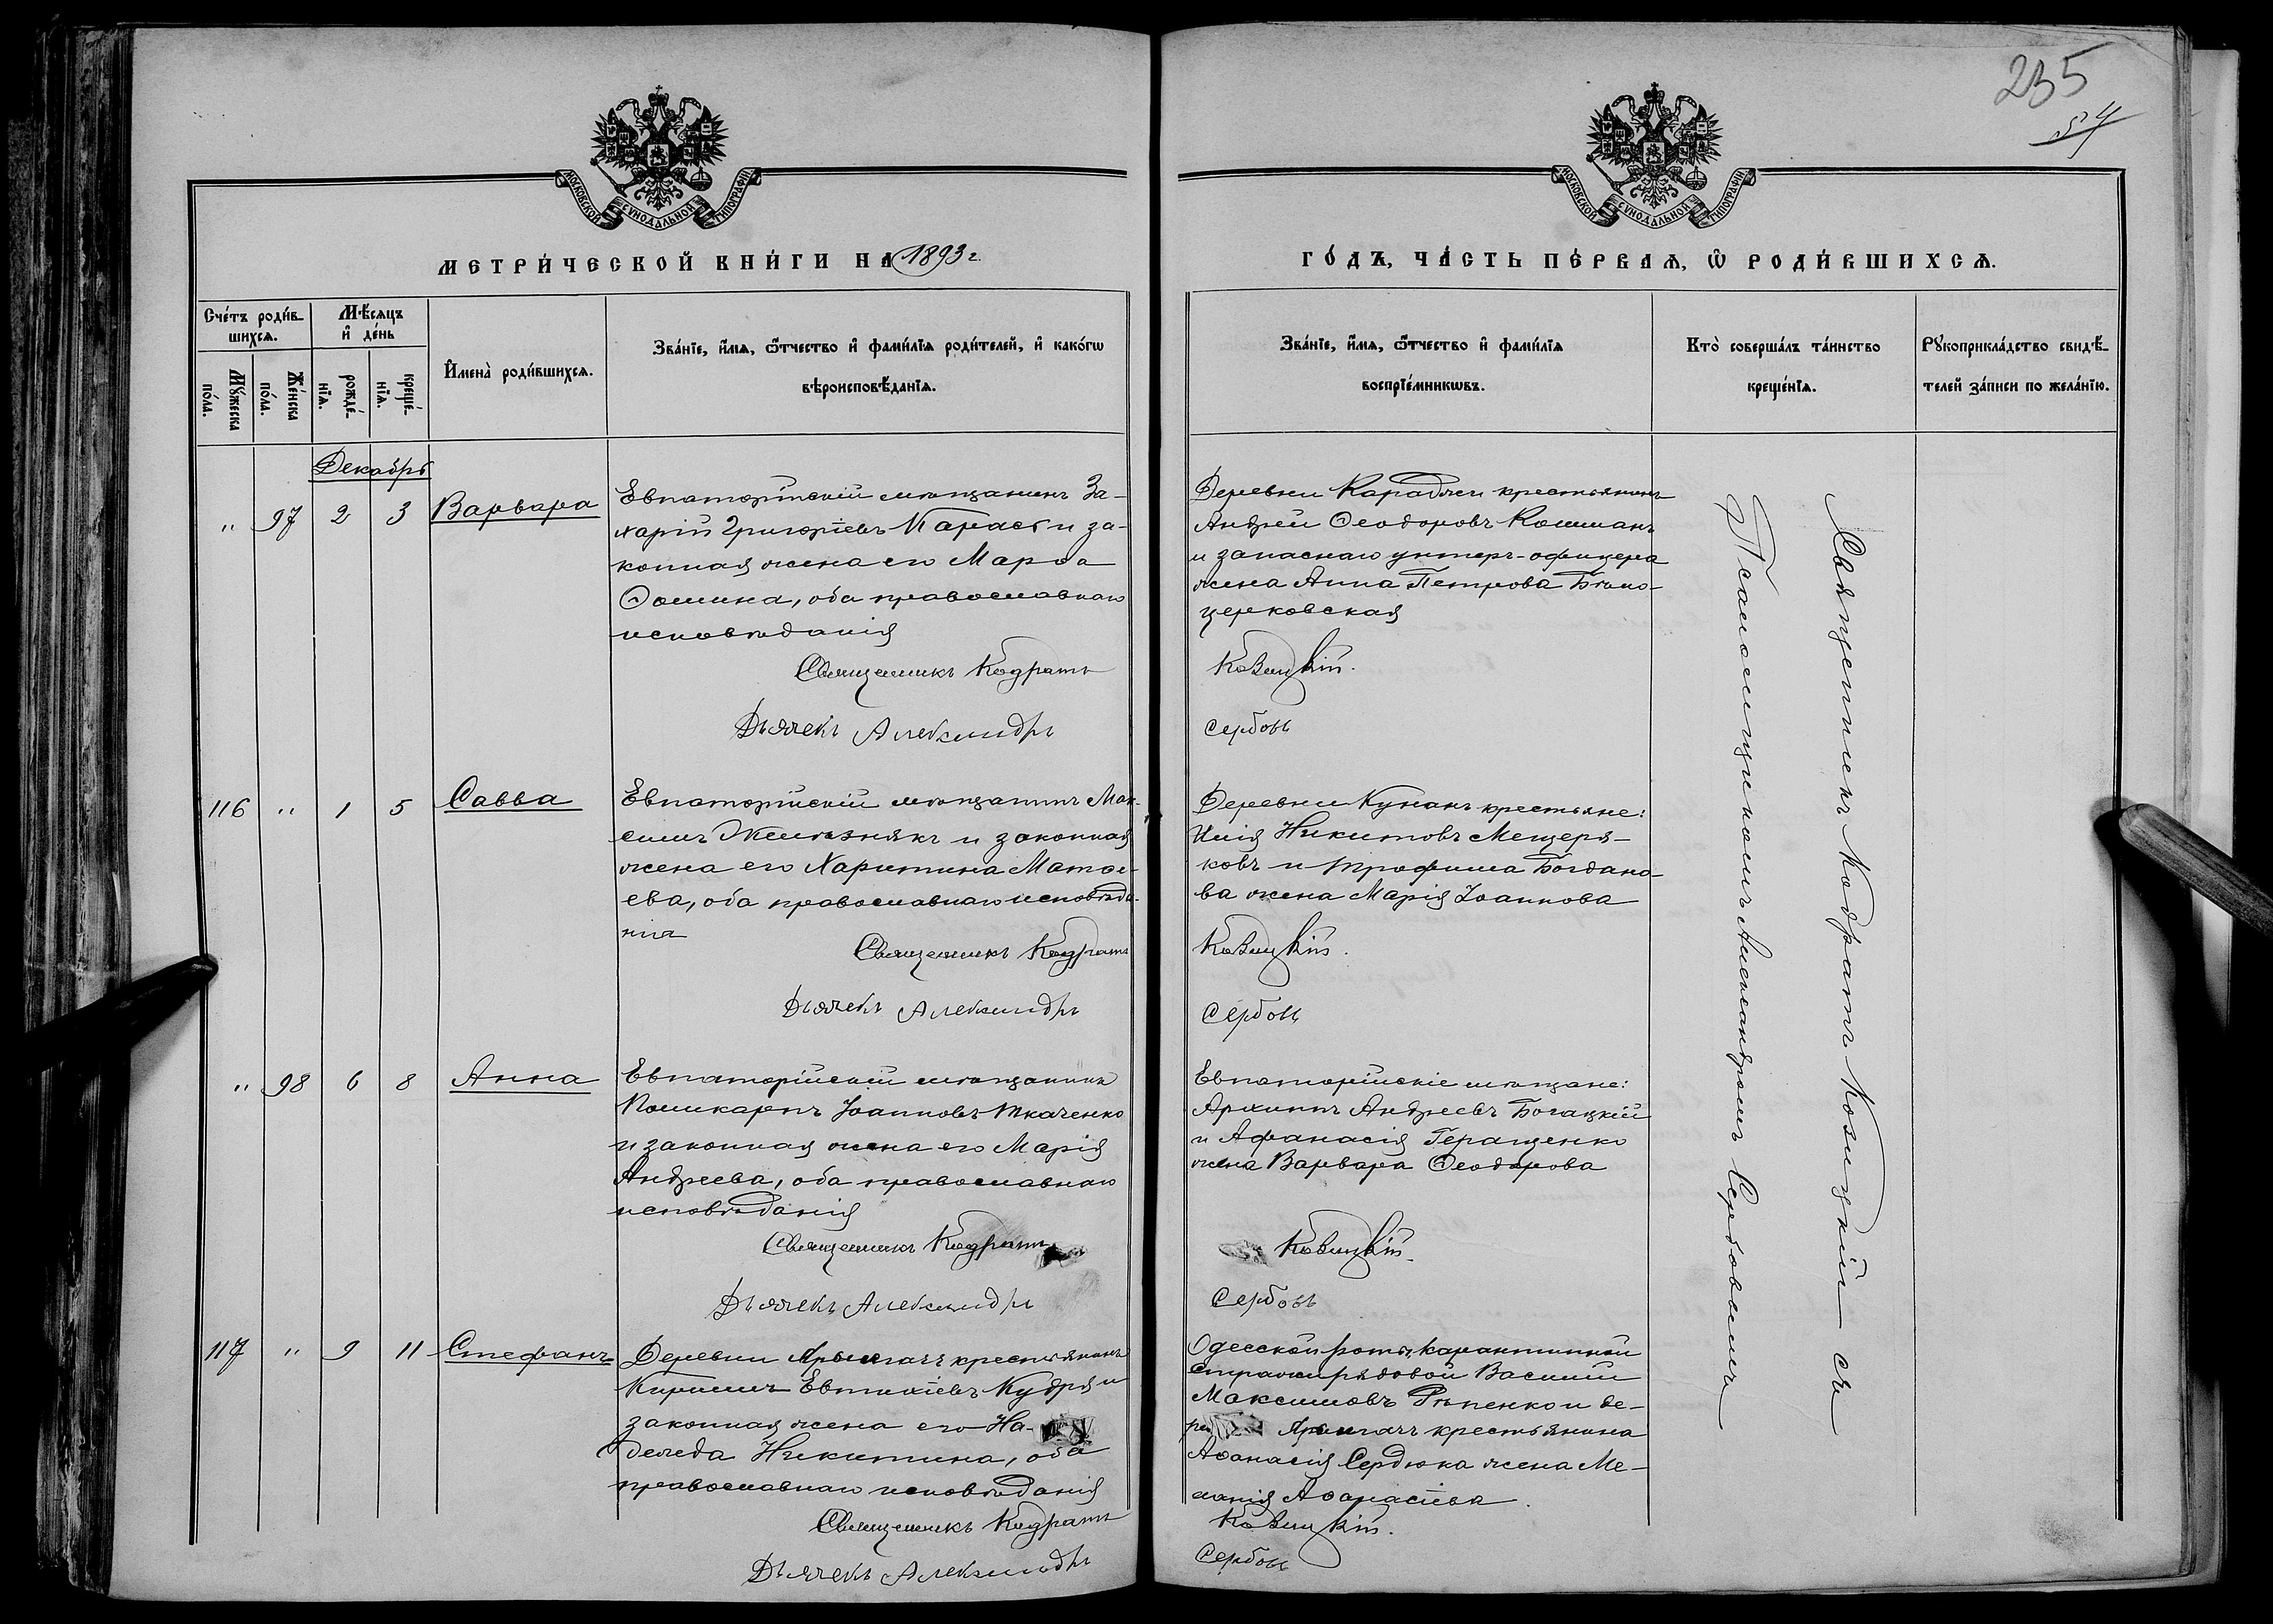 235
54
МОСКОВСКОЙ СѴНОДАЛЬНОЙ ТИПОГРАФІИ
МОСКОВСКОЙ СѴНОДАЛЬНОЙ ТИПОГРАФІИ
МЕТРИ́ЧЕСКОЙ КНИ́ГИ НА 1893 г.
ГО́ДЪ, ЧА́СТЬ ПЕ́РВАѦ, Ѿ РОДИ́ВШИХСѦ.
Сче́тъ роди́в-
шихсѧ.
Мѣ́сѧцъ
и҆ де́нь
Мꙋ́жеска
по́ла.
Же́нска
по́ла.
рожде́-
нїѧ.
креще́-
нїѧ.
И҆мена̀ роди́вшихсѧ.
Зва́нїе, и҆́мѧ, ѻ҆́тчество и҆ фами́лїѧ роди́телей, и҆ како́гѡ
вѣроисповѣ́данїѧ.
Зва́нїе, и҆́мѧ, ѻ҆́тчество и҆ фами́лїѧ
воспрїе́мникѡвъ.
Кто̀ соверша́лъ та́инство
креще́нїѧ.
Рꙋкоприкла́дство свидѣ́-
телей за́писи по жела́нїю.
Декабрь
" 97 2 3 Варвара
Евпаторійскій мѣщанинъ За-
харій Григоріевъ Карась и за-
конная жена его Марѳа
Ѳомина, оба православнаго
исповѣданія
Священникъ Кодратъ
Дьячекъ Александръ
Деревни Караджи крестьянинъ
Андрей Ѳеодоровъ Кошманъ
и запаснаго унтеръ-офицера
жена Анна Петрова Бѣло-
церковская
Козицкій.
Сербовъ
116 " 1 5 Савва
Евпаторійскій мѣщанинъ Мак-
симъ Желѣзнякъ и законная
жена его Харитина Матѳе-
ева, оба православнаго исповѣда-
нія
Священникъ Кодратъ
Дьячекъ Александръ
Деревни Кунанъ крестьяне:
Илія Никитовъ Мещеря-
ковъ и Трофима Богдано-
ва жена Марія Іоаннова
Козицкій.
Сербовъ
" 98 6 8 Анна
Евпаторійскій мѣщанинъ
Поликарпъ Іоанновъ Ткаченко
и законная жена его Марія
Андреева, оба православнаго
исповѣданія
Священникъ Кодратъ
Дьячекъ Александръ
Евпаторійскіе мѣщане:
Архипъ Андреевъ Богацкій
и Афанасія Геращенко
жена Варвара Ѳеодорова
Козицкій.
Сербовъ
117 " 9 11 Стефанъ
Деревни Ярылгачъ крестьянинъ
Кириллъ Евтихіевъ Кудря и
законная жена его На-
дежда Никитина, оба
православнаго исповѣданія
Священникъ Кодратъ
Дьячекъ Александръ
Одесской роты карантинной
стражи рядовой Василій
Максимовъ Рѣпенко и де-
рев Ярылгачъ крестьянина
Аѳанасія Сердюка жена Ме-
ланія Аѳанасіева.
Козицкій.
Сербовъ
Священникъ Кодратъ Козицкій съ
Псаломщикомъ Александромъ Сербовымъ